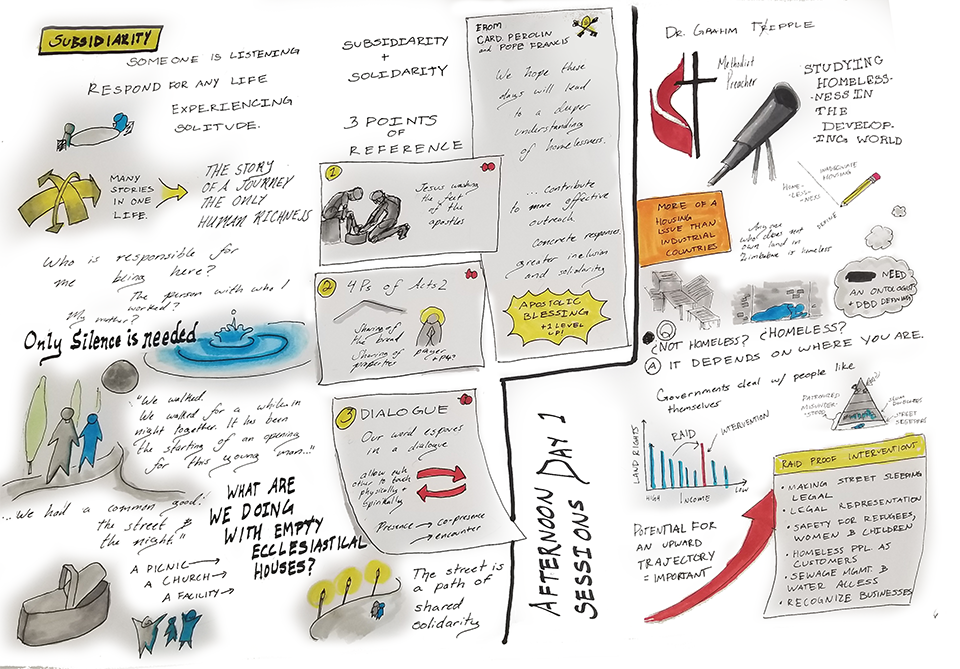 SUBSIDIARITY
SOMEONE IS LISTENING
RESPOND FOR ANY LIFE
EXPERIENCING
SOLITUDE.
MANY
STORIES
IN ONE
LIFE.
THE STORY
OF A JOURNEY
THE ONLY
HUMAN RICHNESS
Who is responsible for
me being here?
The person with who I
worked?
My mother?
Only Silence is needed
"We walked.
We walked for a while in
night together. It has been
the starting of an opening
for this young man..."
...We had a common good:
the street &
the night."
A PICNIC
A CHURCH
A FACILITY
WHAT ARE
WE DOING
WITH EMPTY
ECCLESIASTICAL
HOUSES?
SUBSIDIARITY
+
SOLIDARITY
3 POINTS
OF
REFERENCE
1
Jesus washing
the feet
of the
apostles
2
4 Ps of Acts 2
Sharing of
the bread
Sharing of
properties
prayer
3
DIALOGUE
Our word espores
in a dialogue
Allow each
other to touch
physically +
spiritually
Presence → co-presence
→ encounter
The street is
a path of
shared
solidarity
FROM
CARD. PEROLIN
and POPE FRANCIS
We hope these
days will lead
to a deeper
understanding
of homelessness.
... contribute
to more effective
outreach
Concrete responses,
greater inclusion
and solidarity
APOSTOLIC
BLESSING
+1 LEVEL
UP!
AFTERNOON DAY 1
SESSIONS
DR. GRAHM TRIPPLE
Methodist
Preacher
STUDYING
HOMELESS-
-NESS IN
THE
DEVELOP-
-ING WORLD
INADEQUATE
HOUSING
HOME-
-LESS-
-NESS
DEFINE
MORE OF A
HOUSING
ISSUE THAN
INDUSTRIAL
COUNTRIES
Anyone
who does not
own land in
Zimbabwe is homeless
NEED
AN ONTOLOGIST
+ DBD DEFINING
Q
¿NOT HOMELESS? ¿HOMELESS?
A IT DEPENDS ON WHERE YOU ARE.
Governments deal w/ people like
themselves
STREET
SLEEPERS
LAND RIGHTS
RAID
INTERVENTION
HIGH
INCOME
LOW
POTENTIAL FOR
AN UPWARD
TRAJECTORY
= IMPORTANT
RAID PROOF INTERVENTIONS
• MAKING STREET SLEEPING
LEGAL
• LEGAL REPRESENTATION
• SAFETY FOR REFUGEES,
WOMEN & CHILDREN
• HOMELESS PPL. AS
CUSTOMERS
• SEWAGE MGMT. &
WATER ACCESS
• RECOGNIZE BUSINESSES